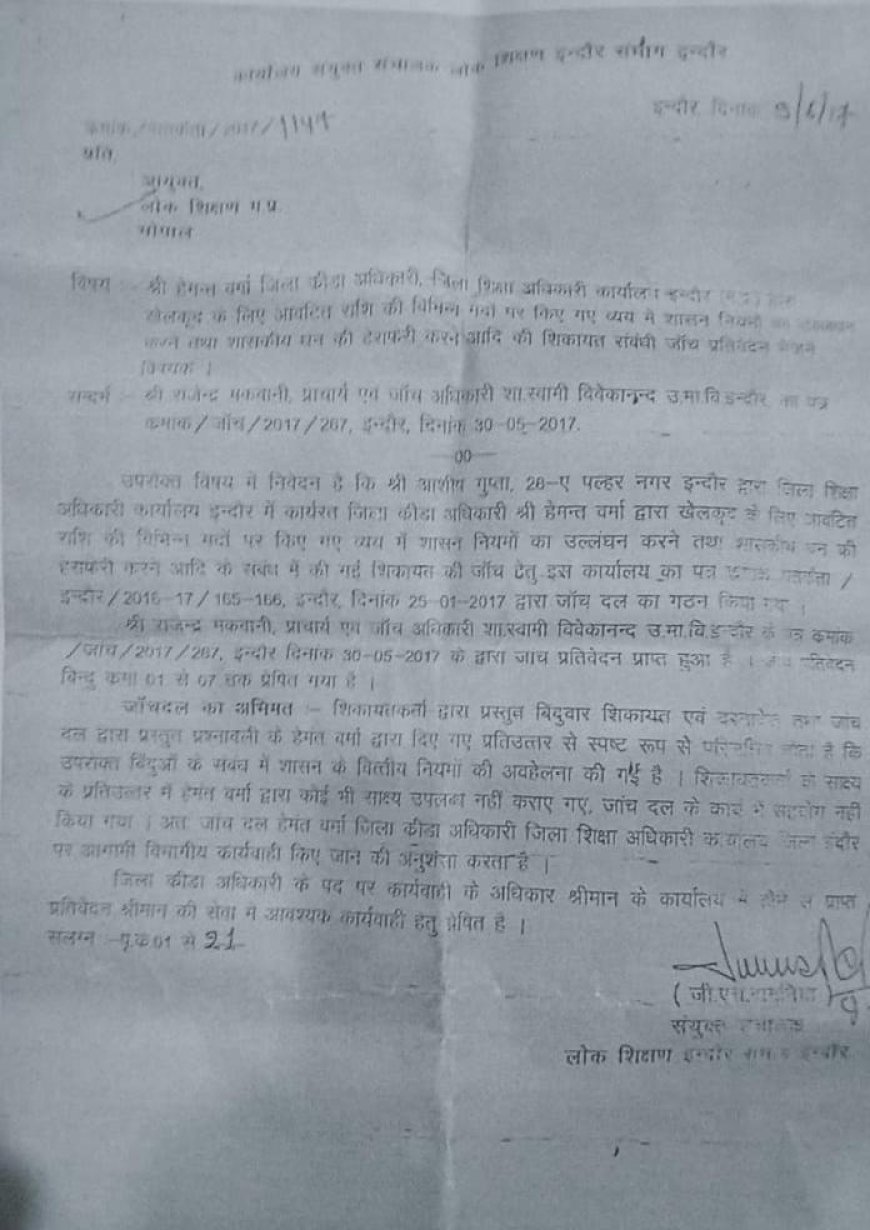 कार्यालय संयुक्त संचालक लोक शिक्षण इन्दौर संभाग इन्दौर
क्रमांक/सतर्कता/2017/1147
इन्दौर, दिनांक 9/6/17
प्रति,
आयुक्त,
लोक शिक्षण म.प्र.
भोपाल
विषय :- श्री हेमन्त वर्मा जिला क्रीडा अधिकारी, जिला शिक्षा अधिकारी कार्यालय इन्दौर (म.प्र.) द्वारा
खेलकूद के लिए आवंटित राशि की विभिन्न मदों पर किए गए व्यय में शासन नियमों का उल्लंघन
करने तथा शासकीय धन की हेराफेरी करने आदि की शिकायत संबंधी जॉच प्रतिवेदन भेजने
विषयक ।
सन्दर्भ :- श्री राजेन्द्र मकवानी, प्राचार्य एवं जॉच अधिकारी शा.स्वामी विवेकानन्द उ.मा.वि.इन्दौर का पत्र
क्रमांक/जॉच/2017/267, इन्दौर, दिनांक 30-05-2017.
--00--
उपरोक्त विषय में निवेदन है कि श्री आशीष गुप्ता, 28-ए पल्हर नगर इन्दौर द्वारा जिला शिक्षा
अधिकारी कार्यालय इन्दौर में कार्यरत जिला क्रीडा अधिकारी श्री हेमन्त वर्मा द्वारा खेलकूद के लिए आवंटित
राशि की विभिन्न मदों पर किए गए व्यय में शासन नियमों का उल्लंघन करने तथा शासकीय धन की
हेराफरी करने आदि के संबंध में की गई शिकायत की जॉच हेतु इस कार्यालय का पत्र क्रमांक सतर्कता/
इन्दौर/2016-17/165-166, इन्दौर, दिनांक 25-01-2017 द्वारा जॉच दल का गठन किया गया ।
श्री राजेन्द्र मकवानी, प्राचार्य एवं जॉच अधिकारी शा.स्वामी विवेकानन्द उ.मा.वि.इन्दौर के पत्र क्रमांक
/जांच/2017/267, इन्दौर दिनांक 30-05-2017 के द्वारा जांच प्रतिवेदन प्राप्त हुआ है । जांच प्रतिवेदन
बिन्दु क्रमा 01 से 07 तक प्रेषित गया है ।
जॉचदल का अभिमत :- शिकायतकर्ता द्वारा प्रस्तुत बिंदुवार शिकायत एवं दस्तावेज तथा जांच
दल द्वारा प्रस्तुत प्रश्नावली के हेमंत वर्मा द्वारा दिए गए प्रतिउत्तर से स्पष्ट रूप से परिलक्षित होता है कि
उपरोक्त बिंदुओं के संबंध में शासन के वित्तीय नियमों की अवहेलना की गई है । शिकायतकर्ता के साक्ष्य
के प्रतिउत्तर में हेमंत वर्मा द्वारा कोई भी साक्ष्य उपलब्ध नहीं कराए गए, जांच दल के कार्य में सहयोग नहीं
किया गया । अतः जांच दल हेमंत वर्मा जिला क्रीडा अधिकारी जिला शिक्षा अधिकारी कार्यालय जिला इंदौर
पर आगामी विभागीय कार्यवाही किए जाने की अनुशंसा करता है ।
जिला क्रीडा अधिकारी के पद पर कार्यवाही के अधिकार श्रीमान के कार्यालय में होने से प्राप्त
प्रतिवेदन श्रीमान की सेवा में आवश्यक कार्यवाही हेतु प्रेषित है ।
सलग्न :-पृ.क्र.01 से 21
(जी.एच.)
संयुक्त संचालक
लोक शिक्षण इन्दौर संभाग इन्दौर